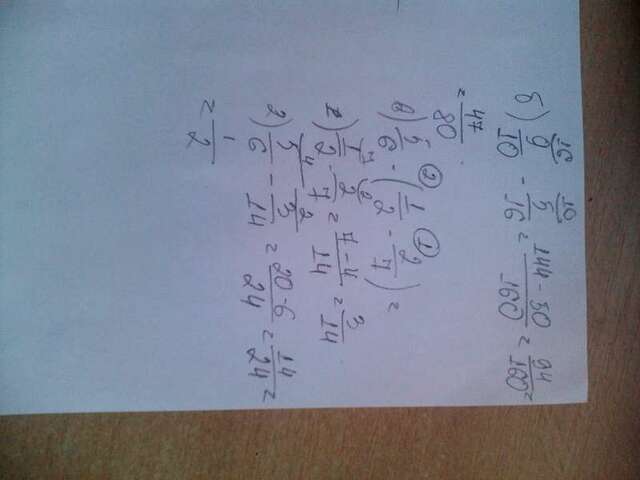 б) 9/10 - 5/16 = 144-50/160 = 94/160 =
= 47/80.
в) 5/6 - (1/2 - 2/7) =
1) 1/2 - 2/7 = 7-4/14 = 3/14
2) 5/6 - 3/14 = 20-6/24 = 14/24 =
= 1/2